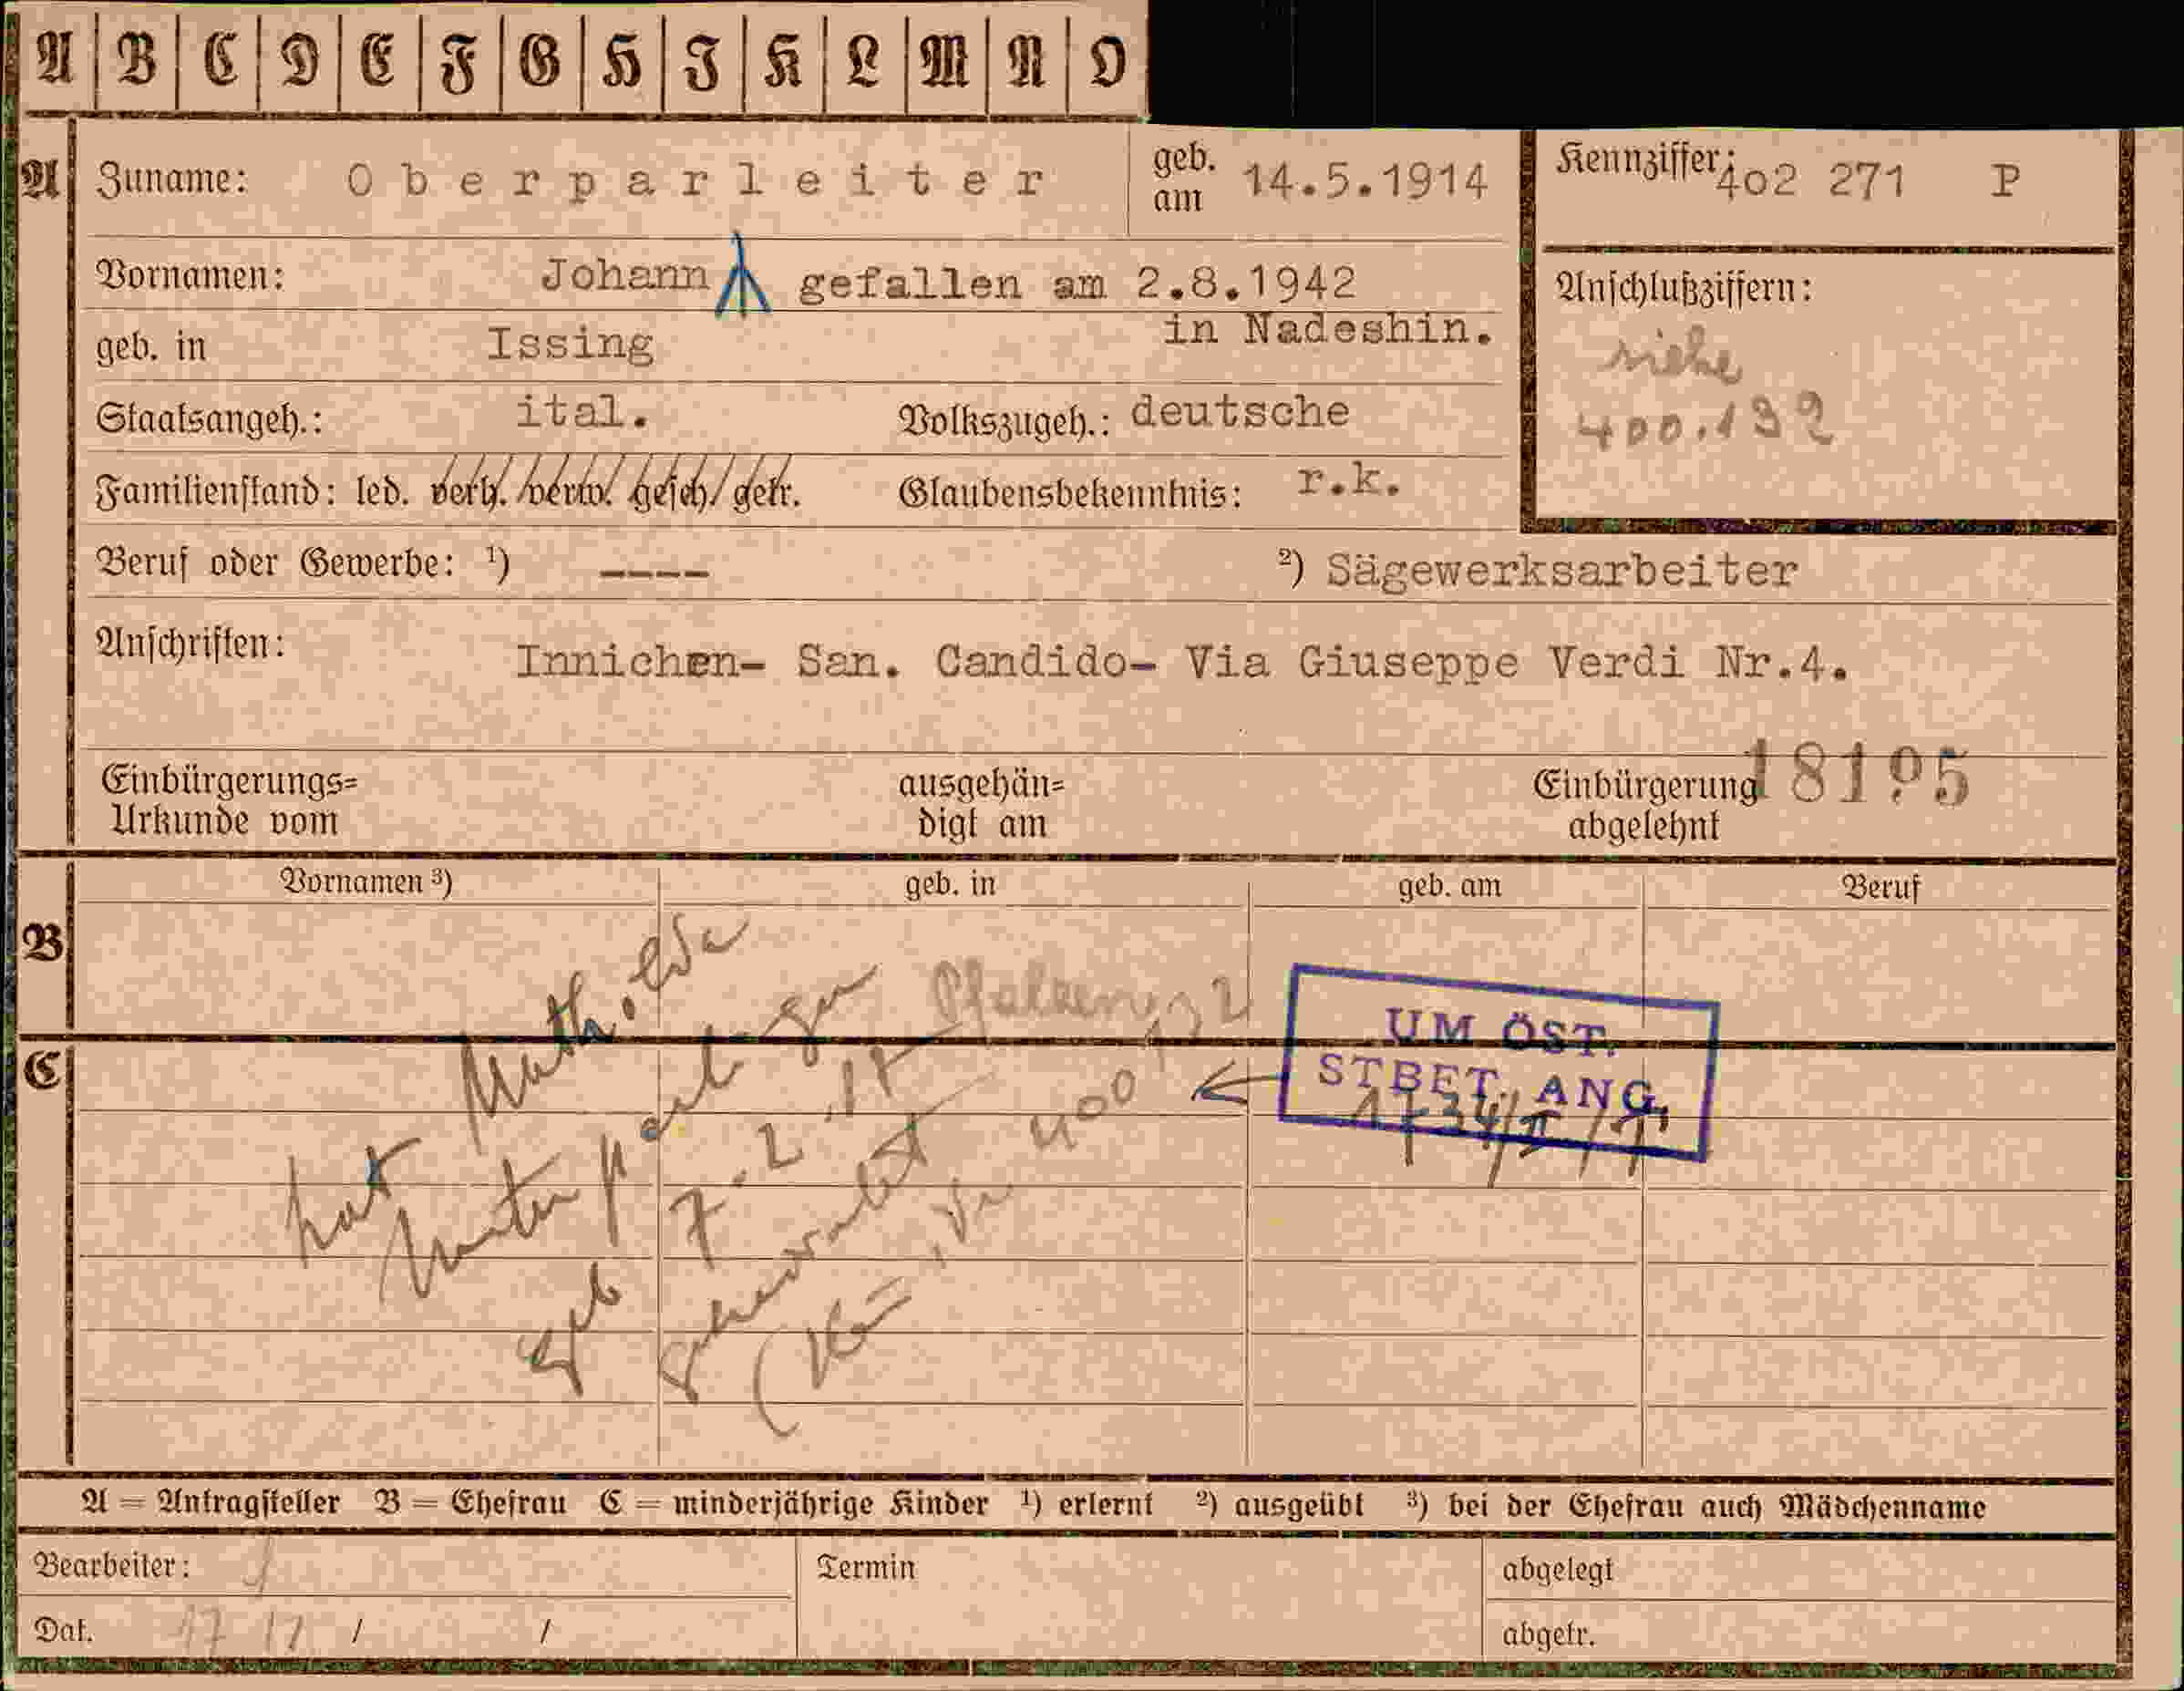 A B C D E F G H I K L M N O
A Zuname: Oberparleiter geb. am 14.5.1914 Kennziffer: 402 271 P
Vornamen: Johann gefallen am 2.8.1942
in Nadeshin.
Anschlußziffern:
siehe
400.132
geb. in Issing
Staatsangeh.: ital. Volkszugeh.: deutsche
Familienstand: led. verh. verw. gesch. getr. Glaubensbekenntnis: r.k.
Beruf oder Gewerbe: ¹) ---- ²) Sägewerksarbeiter
Anschriften: Innichen- San. Candido- Via Giuseppe Verdi Nr.4.
Einbürgerungs= Urkunde vom ausgehän= digt am Einbürgerung abgelehnt 18195
Vornamen ³) geb. in geb. am Beruf
B
C
hat Mathilde
Unterparleiter
geb 7.2.17 Pfalzen
geheiratet
400132
UM ÖST.
STBET. ANG.
A = Antragsteller B = Ehefrau C = minderjährige Kinder ¹) erlernt ²) ausgeübt ³) bei der Ehefrau auch Mädchenname
Bearbeiter: Termin abgelegt
Dat. 17 12 / / abgetr.